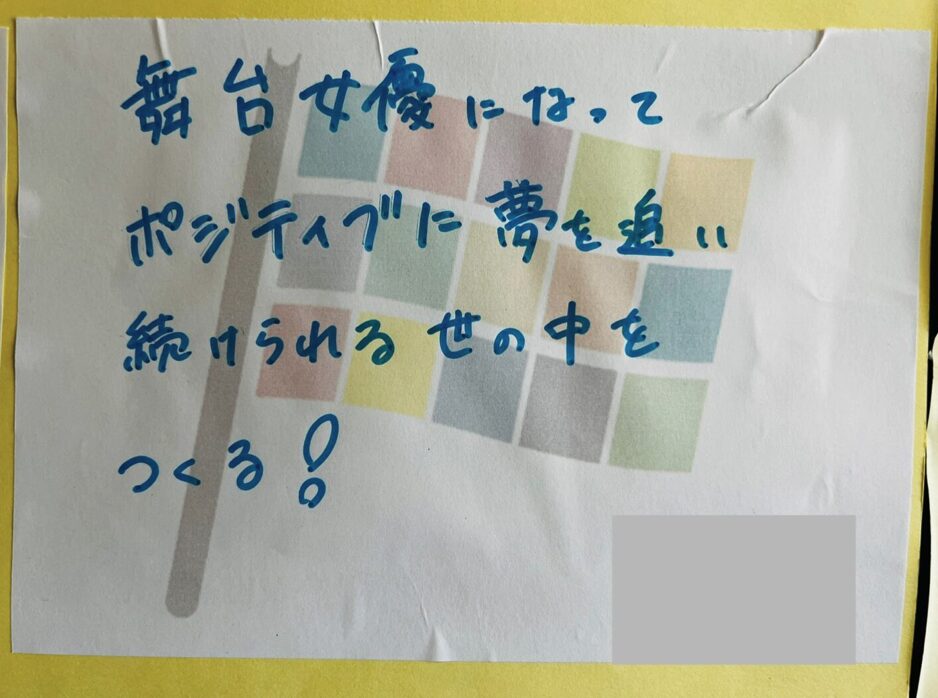 舞台女優になって
ポジティブに夢を追い
続けられる世の中を
つくる!